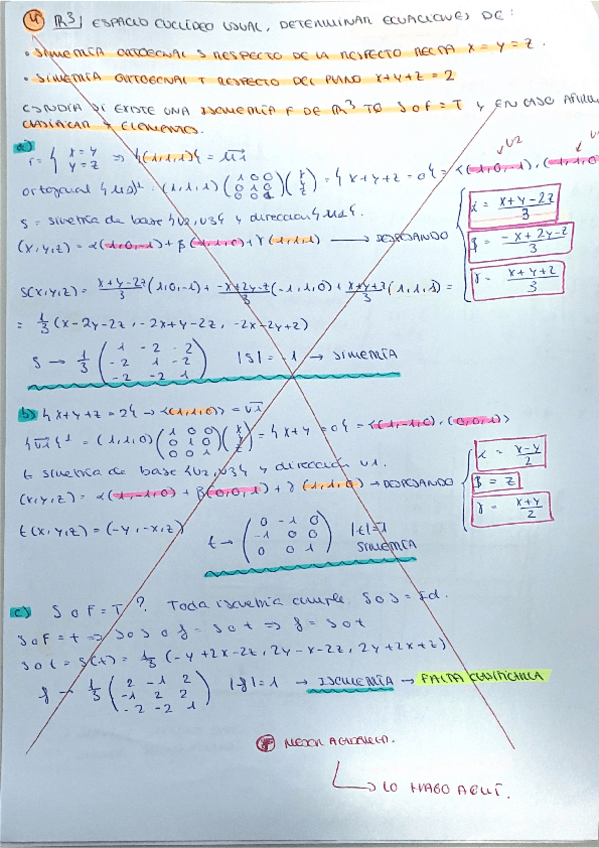 ④ ℝ³, ESPACIO EUCLÍDEO USUAL, DETERMINAR ECUACIONES DE:
• SIMETRÍA ORTOGONAL S RESPECTO DE LA RESPECTO RECTA X = Y = Z.
• SIMETRÍA ORTOGONAL T RESPECTO DEL PLANO X+Y+Z = 2
ESTUDIA SI EXISTE UNA ISOMETRÍA F DE ℝ³ TQ SOF = T Y EN CASO AFIRM.
CLASIFICAR Y ELEMENTOS.
a)
r = { x = y
y = z ⇒ {(1,1,1)} = u1
ortogonal {u1}⊥ : (1,1,1) (1 0 0 / 0 1 0 / 0 0 1) (x / y / z) = {x+y+z=0} = <(1,0,-1), (-1,1,0)
v2
S = simetría de base {v2,v3} y dirección {u1}.
(x,y,z) = α(1,0,-1) + β(-1,1,0) + γ(1,1,1) → DESPEJANDO
α = x+y-2z / 3
β = -x+2y-z / 3
γ = x+y+z / 3
S(x,y,z) = x+y-2z/3 (1,0,-1) + -x+2y-z/3 (-1,1,0) + x+y+z/3 (1,1,1) =
= 1/3 (x-2y-2z, -2x+y-2z, -2x-2y+z)
S → 1/3 (1 -2 -2 / -2 1 -2 / -2 -2 1) |S| = -1 → SIMETRÍA
b) {x+y+z=2} → <(1,1,0)> = v1
{v1}⊥ = (1,1,0) (1 0 0 / 0 1 0 / 0 0 1) (x / y / z) = {x+y=0} = <(1,-1,0), (0,0,1)>
t simetría de base {v2,v3} y dirección v1.
(x,y,z) = α(1,-1,0) + β(0,0,1) + γ(1,1,0) → DESPEJANDO
α = x-y / 2
β = z
γ = x+y / 2
t(x,y,z) = (-y,-x,z)
t → (0 -1 0 / -1 0 0 / 0 0 1) |t|=1
SIMETRÍA
c) SOF = T ? Toda isometría cumple SOS = Id.
SOF = t ⇒ SOSOf = SOt ⇒ f = SOt
SOt = S(t) = 1/3 (-y+2x-2z, 2y-x-2z, 2y+2x+z)
f → 1/3 (2 -1 2 / -1 2 2 / -2 -2 1) |f|=1 → ISOMETRÍA → FALTA CLASIFICARLA
LO HAGO AQUÍ.